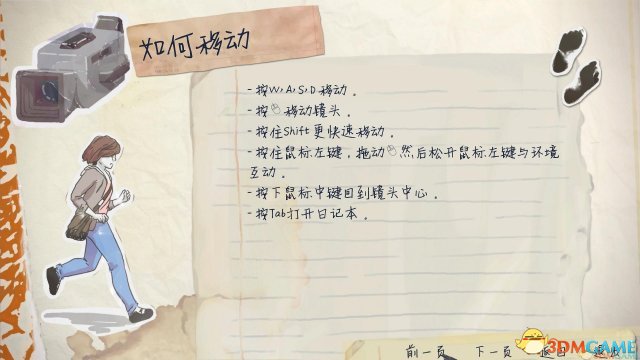 如何移动
-按W,A,S,D移动。
-按移动镜头。
-按住Shift更快速移动。
-按住鼠标左键，拖动然后松开鼠标左键与环境
互动。
-按下鼠标中键回到镜头中心。
-按Tab打开日记本。
前一页 下一页 返回
3DMGAME